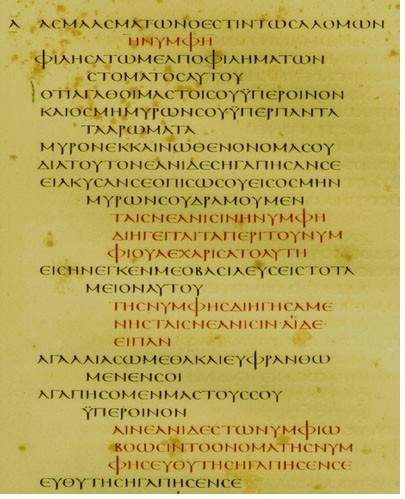 Α ΑϹΜΑΑϹΜΑΤΩΝΟΕϹΤΙΝΤΩϹΑΛΟΜΩΝ
ΗΝΥΜΦΗ
ΦΙΛΗϹΑΤΩΜΕΑΠΟΦΙΛΗΜΑΤΩΝ
ϹΤΟΜΑΤΟϹΑΥΤΟΥ
ΟΤΙΑΓΑΘΟΙΜΑϹΤΟΙϹΟΥΫΠΕΡΟΙΝΟΝ
ΚΑΙΟϹΜΗΜΥΡΩΝϹΟΥΫΠΕΡΠΑΝΤΑ
ΤΑΑΡΩΜΑΤΑ
ΜΥΡΟΝΕΚΚΑΙΝΩΘΕΝΟΝΟΜΑϹΟΥ
ΔΙΑΤΟΥΤΟΝΕΑΝΙΔΕϹΗΓΑΠΗϹΑΝϹΕ
ΕΙΛΚΥϹΑΝϹΕΟΠΙϹΩϹΟΥΕΙϹΟϹΜΗΝ
ΜΥΡΩΝϹΟΥΔΡΑΜΟΥΜΕΝ
ΤΑΙϹΝΕΑΝΙϹΙΝΗΝΥΜΦΗ
ΔΙΗΓΕΙΤΑΙΤΑΠΕΡΙΤΟΥΝΥΜ
ΦΙΟΥΑΕΧΑΡΙϹΑΤΟΑΥΤΗ
ΕΙϹΗΝΕΓΚΕΝΜΕΟΒΑϹΙΛΕΥϹΕΙϹΤΟΤΑ
ΜΕΙΟΝΑΥΤΟΥ
ΤΗϹΝΥΜΦΗϹΔΙΗΓΗϹΑΜΕ
ΝΗϹΤΑΙϹΝΕΑΝΙϹΙΝ·ΑΪΔΕ·
ΕΙΠΑΝ
ΑΓΑΛΛΙΑϹΩΜΕΘΑΚΑΙΕΥΦΡΑΝΘΩ
ΜΕΝΕΝϹΟΙ
ΑΓΑΠΗϹΟΜΕΝΜΑϹΤΟΥϹϹΟΥ
ΫΠΕΡΟΙΝΟΝ
ΑΙΝΕΑΝΙΔΕϹΤΩΝΥΜΦΙΩ
ΒΟΩϹΙΝΤΟΟΝΟΜΑΤΗϹΝΥΜ
ΦΗϹΕΥΘΥΤΗϹΗΓΑΠΗϹΕΝϹΕ
ΕΥΘΥΤΗϹΗΓΑΠΗϹΕΝϹΕ